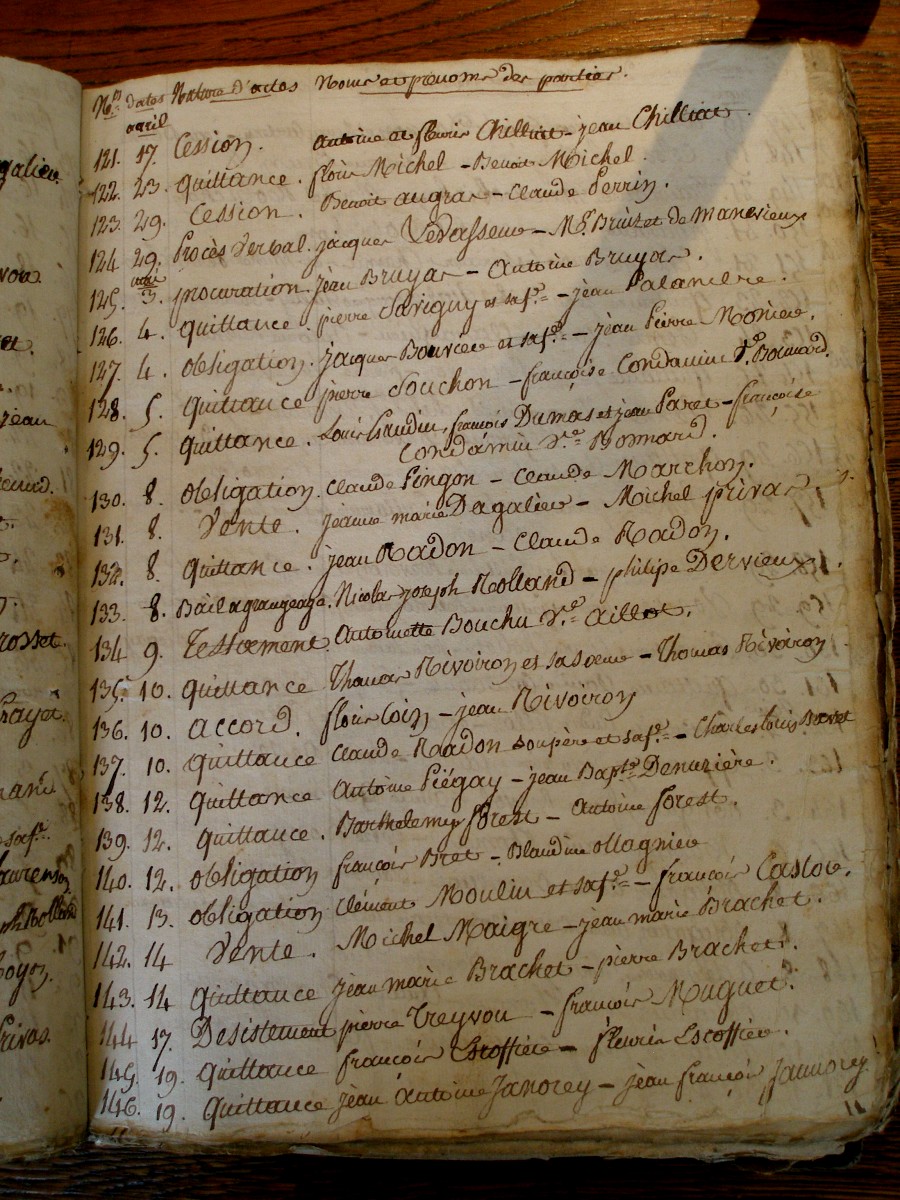 N.os dates Nature d'actes Noms et prenoms des parties.
avril
121. 17. Cession. Antoine et fleurie Chilliat - jean Chilliat.
122. 23. quittance. floire Michel - Benoit Michel.
123. 29. Cession. Benoit augras - Claude Perrin.
124 29. Procès verbal. jacques Levasseur - Mr. Bruizet de Manevieux
mai
125. 3. procuration. jean Bruyas - Antoine Bruyas.
126. 4. quittance. pierre Savigny et saf.e - jean Palandre.
127. 4. obligation. jacques Bouviere et saf.e - jean Pierre Moniere.
128. 5. quittance pierre Souchon - françoise Condamin v.e Bonnard.
129. 5. quittance. Louis Gaudin, françois Dumas et jean Paret - françoise
Condamin v.e Bonnard.
130. 8. obligation. Claude Pingon - Claude Marchon.
131. 8. Vente. jeanne marie Dagalier - Michel privas.
132. 8. quittance. jean Nadon - Claude Nadon.
133. 8. Bail a grangeage. Nicolas joseph Rolland - philipe Dervieux.
134 9. Testament. Antoinette Bouchu v.e aillot.
135. 10. quittance Thomas Rivoiron et sa soeur - Thomas Rivoiron
136. 10. accord. floris Coin - jean Rivoiron
137. 10. quittance Claude Nadon soupère et saf.e - Charles Louis Bovet
138. 12. quittance Antoine Piégay - jean Bap.te Denuzière.
139. 12. quittance. Barthelemy forest - Antoine forest.
140. 12. obligation françois Bret - Blandine ollagnier
141. 13. obligation Clément Moulin et saf.e - françois Castor.
142. 14 Vente. Michel Maigre - jean marie Brachet.
143. 14 quittance jean marie Brachet - pierre Brachet.
144 17. Desistement pierre Treyvou - françois Muguet.
145. 19. quittance françois Escoffier - fleurie Escoffier.
146. 19. quittance jean Antoine Janorey - jean françois Jannorey.